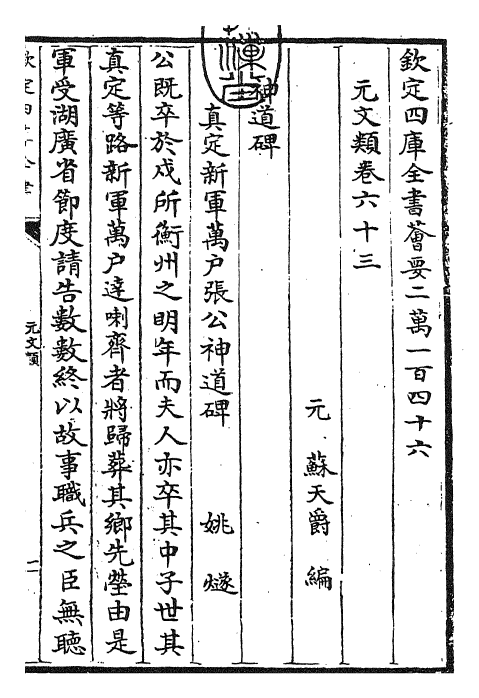 欽定四庫全書薈要二萬一百四十六
元文類卷六十三
元 蘇天爵 編
神道碑
真定新軍萬户張公神道碑 姚燧
公既卒於戍所衡州之明年而夫人亦卒其中子世其
真定等路新軍萬户達喇齊者將歸葬其鄉先塋由是
軍受湖廣省節度請告數數終以故事職兵之臣無聽
元文類